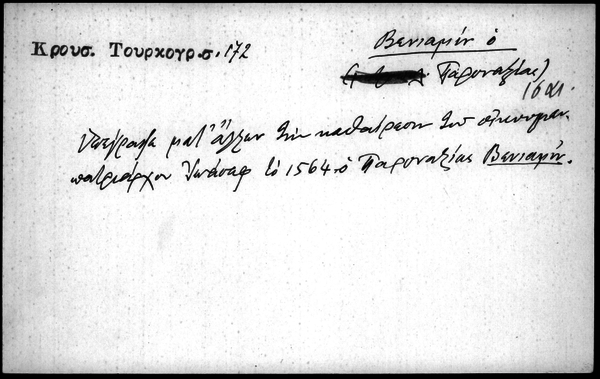 Κρουσ. Τουρκογρ.σ. 172
Βενιαμίν ὁ
Παροναξίας)
16 αι.
Ὑπέγραψε μετ' ἄλλων τὴν καθαίρεσιν τοῦ οἰκουμεν.
πατριάρχου Ἰωάσαφ τὸ 1564 ὁ Παροναξίας Βενιαμίν.